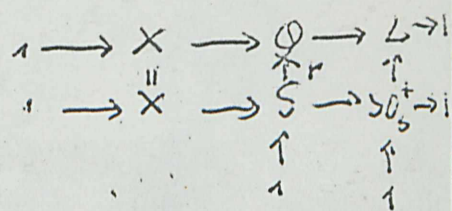 1 → X → Q → L → 1
|| ↑ r ↑
1 → X → S → SO₃⁺ → 1
↑ ↑
1 1